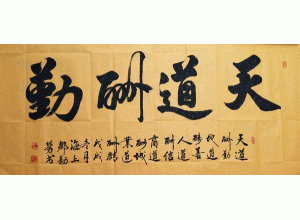 天道酬勤
天道
酬勤
地道
酬善
人道
酬信
商道
酬誠
業道
酬精
戊戌
冬月
海上